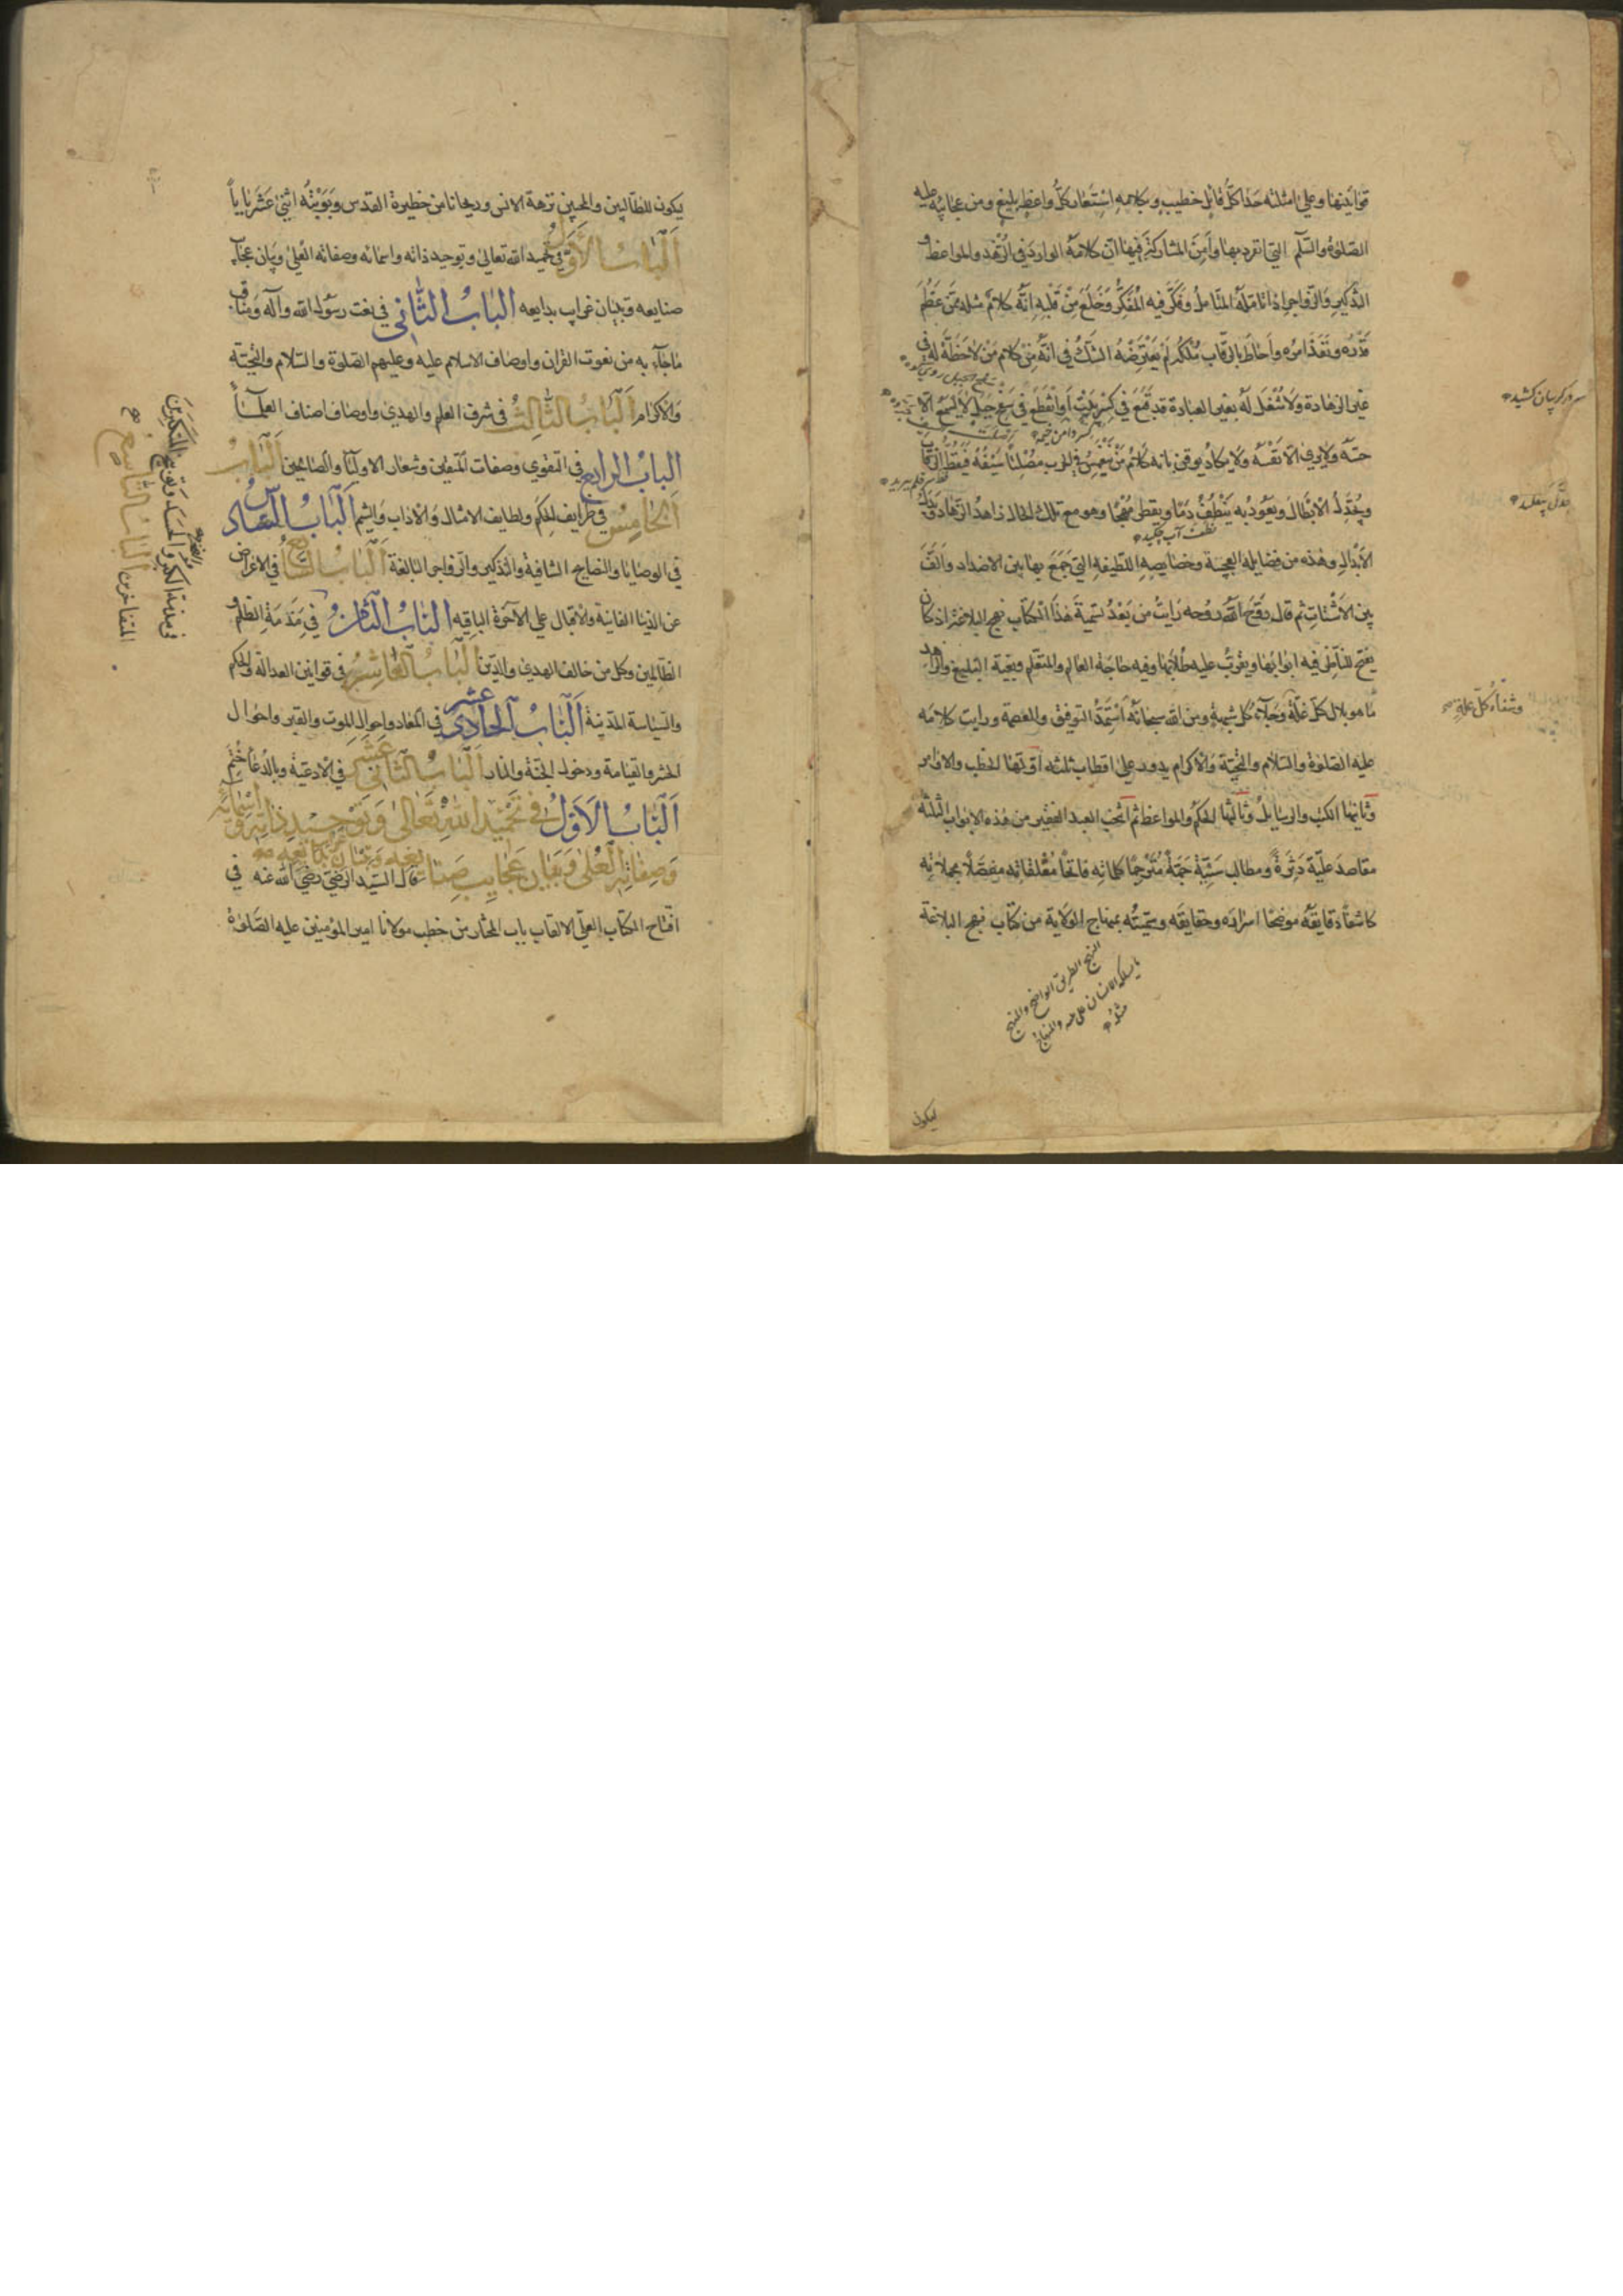 قوانينها وعلى امثلته حذا كل قائل خطيب وبكلامه استعان كل واعظ بليغ ومن عجائبه عليه
الصلوة والسلم التي انفرد بها وامن المشاركة فيها ان كلامه الوارد في الزهد والمواعظ و
التذكير والزواجر اذا تامله المتامل وفكر فيه المفكر وخلع من قلبه انه كلام مثله ممن عظم
قدره ونفذ امره واحاط بالرقاب ملكه لم يعترضه الشك في انه من كلام من لاحظ له في
غير الزهادة ولا شغل له بغير العبادة قد قبع في كسر بيت او انقطع في سفح جبل لا يسمع الا
سر در کریبان کشید
حسه ولا يرى الا نفسه ولا يكاد يوقن بانه كلام من ينغمس في الحرب مصلتا سيفه فيقط الرقاب
ويجدل الابطال ويعود به ينطف دما ويقطر مهجا وهو مع تلك الحال زاهد الزهاد وبدل
نطف آب چکید
الابدال وهذه من فضايله العجيبة وخصايصه اللطيفة التي جمع بها بين الاضداد والف
بين الاشتات ثم قال روح الله روحه رايت من بعد تسمية هذا الكتاب نهج البلاغة اذ كان
يفتح للناظر فيه ابوابها ويقرب عليه طلابها وفيه حاجة العالم والمتعلم وبغية البليغ والزاهد
ما هو بلال كل غلة وجلاء كل شبهة ومن الله سبحانه استمد التوفيق والعصمة ورايت كلامه
وشفاء كل علة صح
عليه الصلوة والسلام والتحية والاكرام يدور على اقطاب ثلثه اولها الخطب والاوامر
وثانيها الكتب والرسايل وثالثها الحكم والمواعظ ثم انتخب العبد الفقير من هذه الابواب الثلثة
مقاصد علية ومطالب سنية جمة مترجما كلماته فاتحا مغلقاته مفصلا مجملاته
كاشفا دقايقه موضحا اسراره وحقايقه وسميته بمنهاج الولاية من كتاب نهج البلاغة
النهج الطريق الواضح والمنهج
والمنهاج
مثله
ليكون
يكون للطالبين والمحبين نزهة الانس وريحانا من حظيرة القدس وبوبته اثني عشر بابا
الباب الاول في تحميد الله تعالى وتوحيد ذاته واسمائه وصفاته العلى وبيان عجايب
صنايعه وتبيان غرايب بدايعه الباب الثاني في نعت رسول الله وآله ومناقب
ما جاء به من نعوت القران واوصاف الاسلام عليه وعليهم الصلوة والسلام والتحية
والاكرام الباب الثالث في شرف العلم والهدى واوصاف اصناف العلماء
الباب الرابع في التقوى وصفات المتقين وشعار الاوليا والصالحين الباب
الخامس في ظرايف الحكم ولطايف الامثال والاداب والشيم الباب السادس
في الوصايا والنصايح الشافية والتذكير والزواجر البالغة الباب السابع في الاعراض
عن الدنيا الفانية والاقبال على الآخرة الباقيه الباب الثامن في مذمة الظلم و
الظالمين وكل من خالف الهدى والدين الباب العاشر في قوانين العدالة والحكم
والسياسة المدنية الباب الحادي عشر في المعاد واحوال الموت والقبر واحوال
الحشر والقيامة ودخول الجنة والنار الباب الثاني عشر في الادعية وبالدعا ختم
الباب الاول في تحميد الله تعالى وتوحيد ذاته واسمائه
وصفاته العلى وبيان عجايب صنايعه وتبيان بدايعه قال السيد الرضي رضي الله عنه في
افتتاح الكتاب العلي الالقاب باب المختار من خطب مولانا امير المؤمنين عليه الصلوة
الباب التاسع
في مذمة الكبر والحسد وتقريع المتكبرين
المتفاخرين